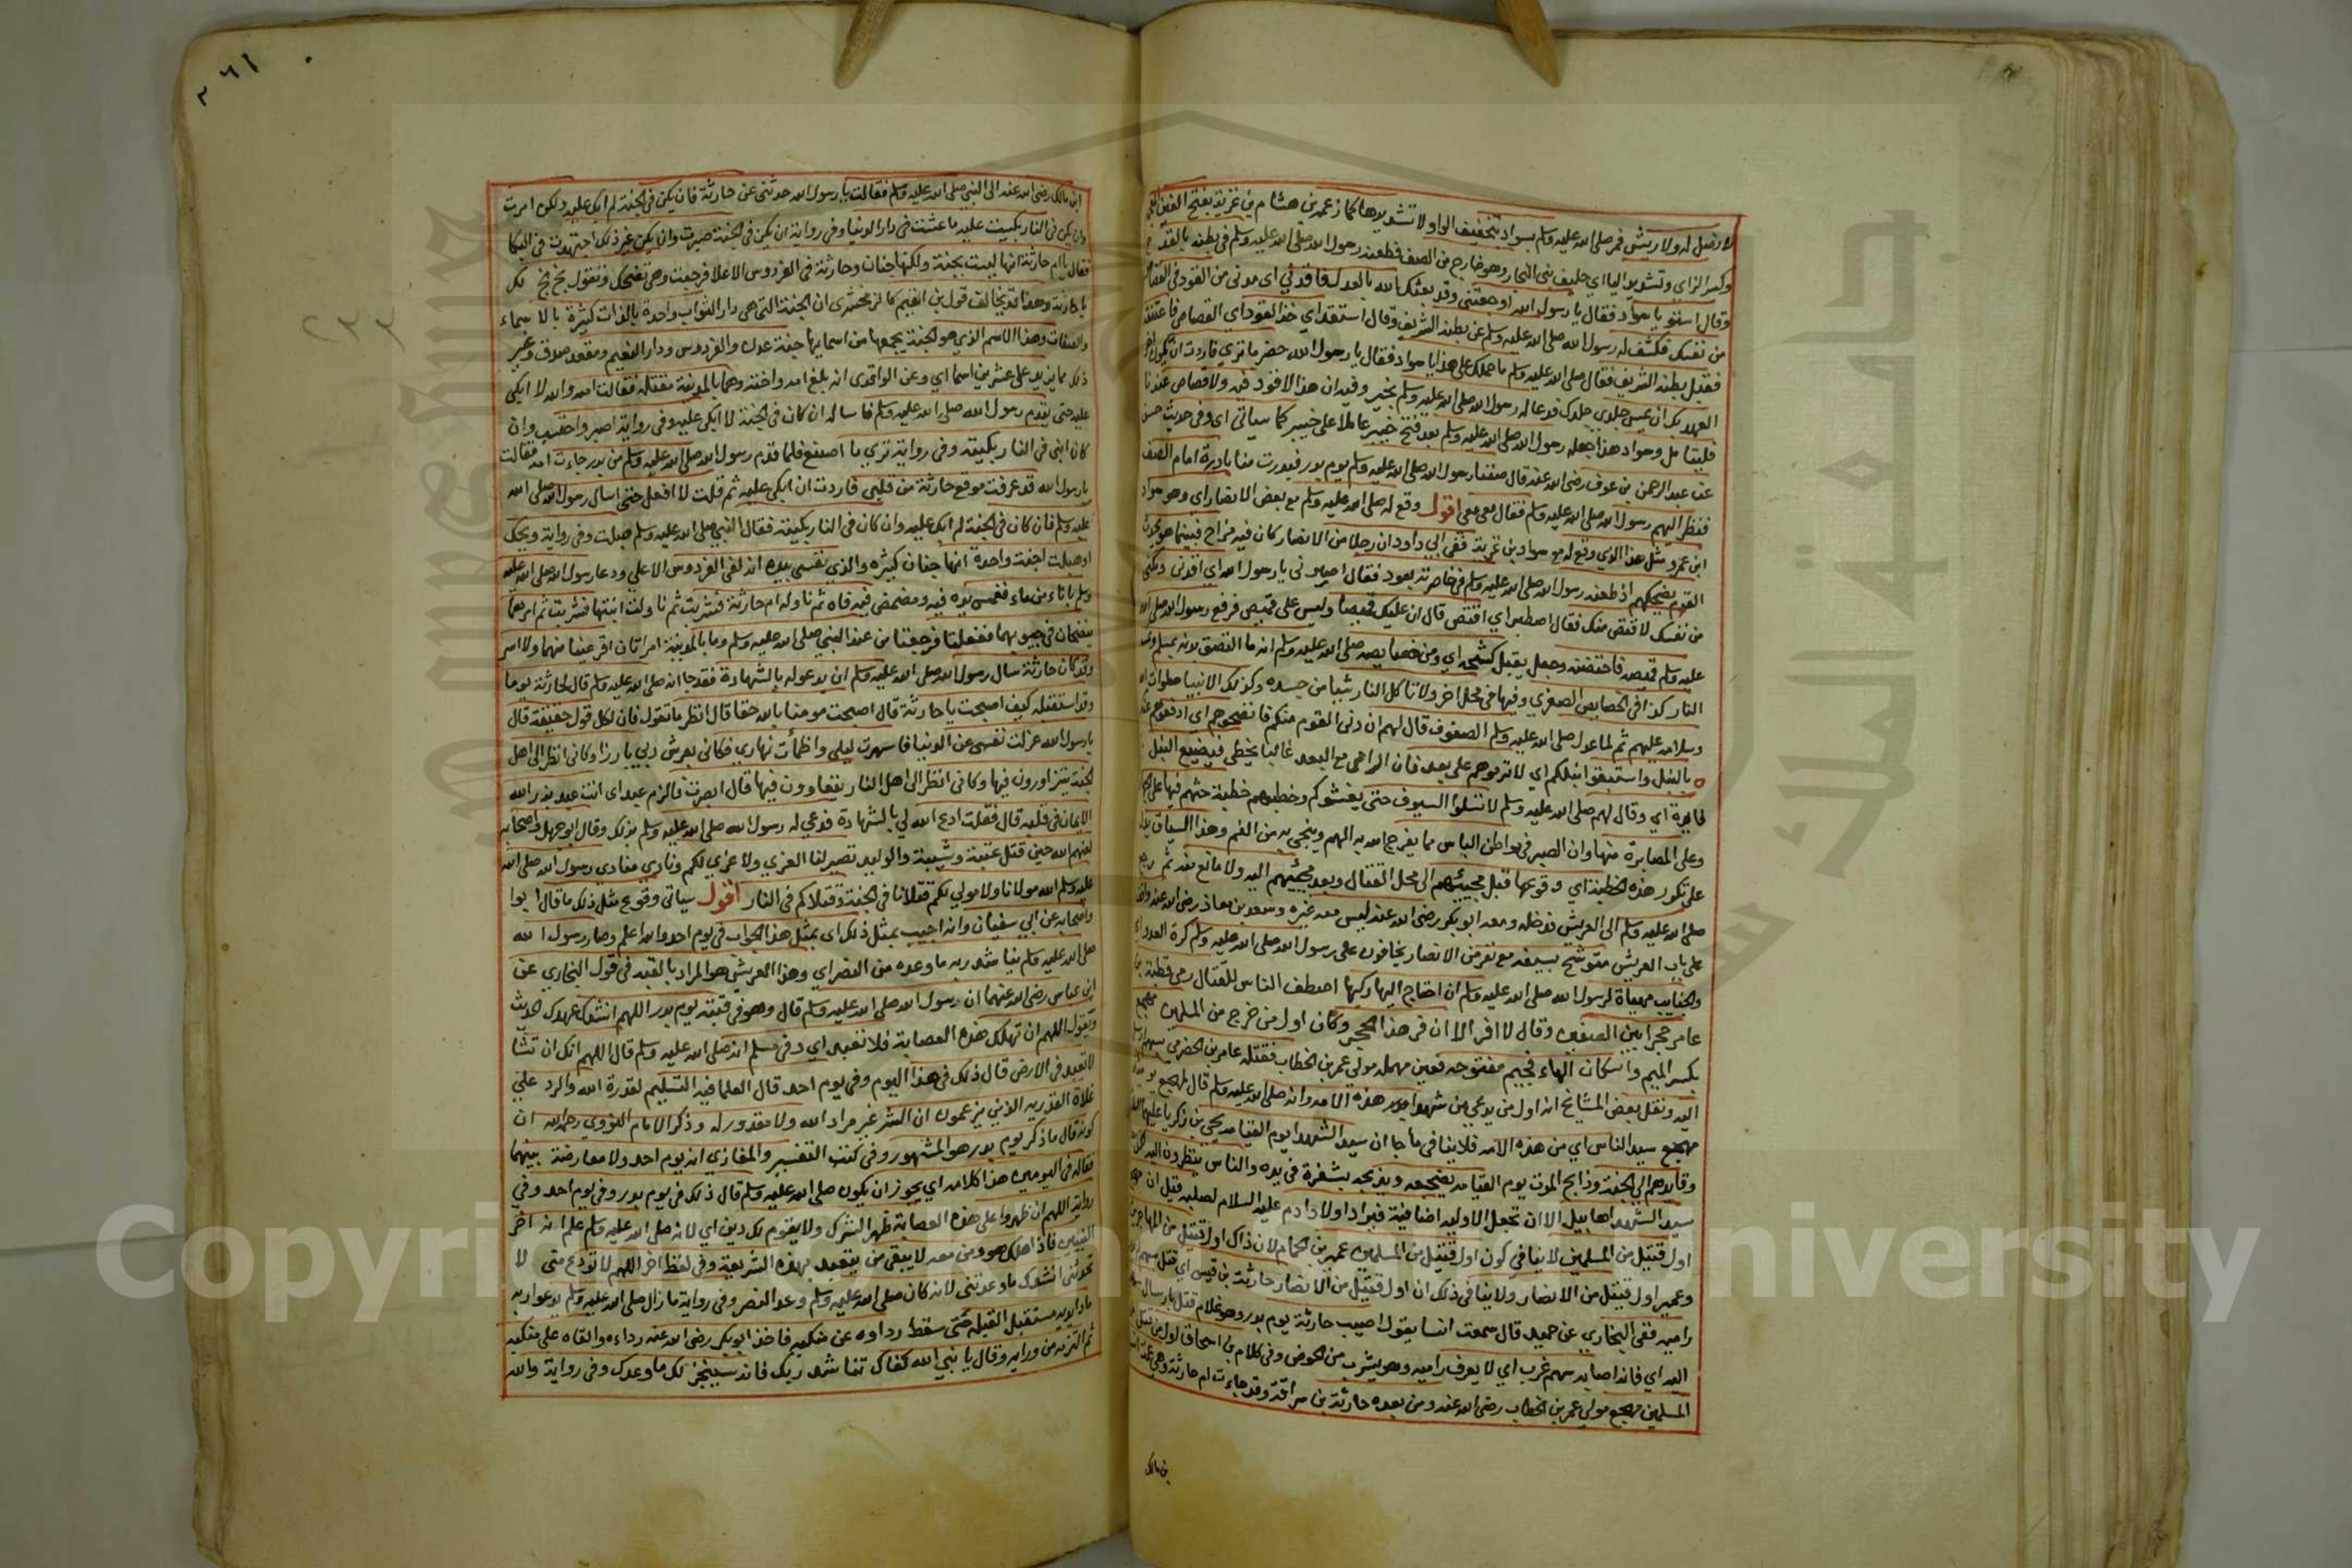 لا نصل له ولا ريش فمر صلى الله عليه وسلم بسواد بتخفيف الواو لا تشديدها كما زعمه بن هشام بن غزية بفتح الغين
وكسر الزاي وتشديد اليا اي حليف بني النجار وهو خارج من الصف فطعنه رسول الله صلى الله عليه وسلم في بطنه بالقدح
وقال استو يا سواد فقال يا رسول الله اوجعتني وقد بعثك الله بالعدل فاقدني اي مدني من القود
من نفسك فكشف له رسول الله صلى الله عليه وسلم عن بطنه الشريف وقال استقد اي خذ القود اي القصاص فاعتنقه
فقبل بطنه الشريف فقال صلى الله عليه وسلم ما حملك على هذا يا سواد فقال يا رسول الله حضر ما تري فاردت ان يكون
العهد بك ان يمس جلدي جلدك فدعا له رسول الله صلى الله عليه وسلم بخير وفيه ان هذا لا قود فيه ولا قصاص عندنا
فليتامل وسواد هذا جعله رسول الله صلى الله عليه وسلم بعد فتح خيبر عاملا على خيبر كما سياتي اي وفي حديث حسن
عن عبد الرحمن بن عوف رضى الله عنه قال صفنا رسول الله صلى الله عليه وسلم يوم بدر فبدرت منا بادرة امام الصف
فنظر اليهم رسول الله صلى الله عليه وسلم فقال معي معي اقول وقع له صلى الله عليه وسلم مع بعض الانصار اي وهو سواد
ابن عمرو مثل هذا الذي وقع له مع سواد بن غزية ففي ابي داود ان رجلا من الانصار كان فيه مزاح فبينما هو يحدث
القوم يضحكهم اذ طعنه رسول الله صلى الله عليه وسلم في خاصرته بعود فقال اصبرني يا رسول الله اي اقدني
من نفسك لاقتص منك فقال اصطبر اي اقتص قال ان عليك قميصا وليس على قميص فرفع رسول الله صلى الله
عليه وسلم قميصه فاحتضنه وجعل يقبل كشحه اي ومن خصايصه صلى الله عليه وسلم انه ما التصق ببدنه مسلم
النار كذا في الخصايص الصغري وفيها في محل اخر ولا تاكل النار شيئا من جسده وكذلك الانبيا صلوات الله
وسلامه عليهم ثم لما عدل صلى الله عليه وسلم الصفوف قال لهم ان دني القوم منكم فانضحوهم اي ادفعوهم عنكم
بالنبل واستبقوا نبلكم اي لا ترموهم على بعد فان الرامي مع البعد غالبا يخطي فيضيع النبل
وقال لهم صلى الله عليه وسلم لا تسلوا السيوف حتى يغشوكم وخطبهم خطبة حثهم فيها على
وعلى المصابرة منها وان الصبر في مواطن الباس مما يفرج الله به الهم وينجي به من الغم وهذا السياق
على تكرر هذه الخطبة اي وقوعها قبل مجيئهم الى محل القتال وبعد مجيئهم اليه ولا مانع منه ثم رجع
صلى الله عليه وسلم الى العريش فدخله ومعه ابو بكر رضى الله عنه ليس معه غيره وسعد بن معاذ رضى الله عنه
على باب العريش متوشح بسيفه مع نفر من الانصار يخافون على رسول الله صلى الله عليه وسلم كرة العدو
والجنايب مهياة لرسول الله صلى الله عليه وسلم ان احتاج اليها ركبها اصطف الناس للقتال رمي قطبة بن
عامر حجرا بين الصفين وقال لا افر الا ان فر هذا الحجر وكان اول من خرج من المسلمين مهجع
بكسر الميم واسكان الهاء فجيم مفتوحة فعين مهملة مولى عمر بن الخطاب فقتله عامر بن الحضرمي بسهم
اليه ونقل بعض المشايخ انه اول من يدعى من شهدا هذه الامه وانه صلى الله عليه وسلم قال مهجع يومئذ
مهجع سيد الناس اي من هذه الامه فلا ينافي ما جا ان سيد الشهدا يوم القيامه يحيى بن زكريا عليهما
وقايدهم الى الجنة وذابح الموت يوم القيامه يضجعه ويذبحه بشفرة في يده والناس ينظرون اليه
سيد الشهدا هابيل الا ان تجعل الاوليه اضافية فيراد اولاد ادم عليه السلام لصلبه قيل ان
اول قتيل من المسلمين لا ينافي كون اول قتيل من المسلمين عمير بن الحمام لان ذاك اول قتيل من المهاجرين
وعمير اول قتيل من الانصار ولا ينافي ذلك ان اول قتيل من الانصار حارثة بن قيس اي قتل بسهم
راميه ففي البخاري عن حميد قال سمعت انسا يقول اصيب حارثة يوم بدر وهو غلام قتل بارسال
اليه اي فانه اصابه سهم غرب اي لا يعرف راميه وهو يشرب من الحوض وفي كلام بن اسحاق اول من قتل
المسلمين مهجع مولى عمر بن الخطاب رضى الله عنه ومن بعده حارثة بن سراقة وقد جاءت ام حارثة وهي
بن مالك
٢٦١
ابن مالك رضى الله عنه الى النبي صلى الله عليه وسلم فقالت يا رسول الله حدثني عن حارثة فان يكن في الجنة لم ابك عليه ولكن
وان يكن في النار بكيت عليه ما عشت في دار الدنيا وفي رواية ان يكن في الجنة صبرت وان يكن غير ذلك اجتهدت في البكا
فقال يا ام حارثة انها ليست بجنة ولكنها جنان وحارثة في الفردوس الاعلا فرجعت وهي تضحك وتقول بخ بخ لك
يا حارثة وهذا قد يخالف قول بن القيم كالزمخشري ان الجنة التي هي دار الثواب واحدة بالذات كثيرة بالاسماء
والصفات وهذا الاسم الذي هو الجنة يجمعها من اسمايها جنة عدن والفردوس ودار النعيم ومقعد صدق وغير
ذلك مما يزيد على عشرين اسما اي وعن الواقدي انه بلغ امه واخته وهما بالمدينة مقتله فقالت امه والله لا ابكي
عليه حتى يقدم رسول الله صلى الله عليه وسلم فاساله ان كان في الجنة لا ابكي عليه وفي رواية اصبر واحتسب وان
كان ابني في النار بكيته وفي رواية تري ما اصنع فلما قدم رسول الله صلى الله عليه وسلم من بدر جاءت امه فقالت
يا رسول الله قد عرفت موقع حارثة من قلبي فاردت ان ابكي عليه ثم قلت لا افعل حتى اسال رسول الله صلى الله
عليه وسلم فان كان في الجنة لم ابك عليه وان كان في النار بكيته فقال النبي صلى الله عليه وسلم هبلت وفي رواية ويحك
اوهبلت اجنة واحدة انها جنان كثيره والذي نفسي بيده انه لفي الفردوس الاعلى ودعا رسول الله صلى الله عليه
وسلم باناء من ماء فغمس يده فيه ومضمض فيه فاه ثم ناوله ام حارثة فشربت ثم ناولت ابنتها فشربت ثم امرهما
ينضحان في جيوبهما ففعلتا فرجعتا من عند النبي صلى الله عليه وسلم وما بالمدينة امراتان اقر عينا منهما ولا اسر
وقد كان حارثة سال رسول الله صلى الله عليه وسلم ان يدعو له بالشهادة فقد جا انه صلى الله عليه وسلم قال لحارثة يوما
وقد استقبله كيف اصبحت يا حارثة قال اصبحت مومنا بالله حقا قال انظر ما تقول فان لكل قول حقيقة قال
يا رسول الله عزلت نفسي عن الدنيا فاسهرت ليلي واظمأت نهاري فكاني بعرش ربي بارزا وكاني انظر الى اهل
الجنة يتزاورون فيها وكاني انظر الى اهل النار يتعاوون فيها قال ابصرت فالزم عبد اي انت عبد نور الله
الايمان في قلبه قال فقلت ادع الله لي بالشهادة فدعي له رسول الله صلى الله عليه وسلم بذلك وقال ابو جهل واصحابه
لعنهم الله حين قتل عتبة وشيبة والوليد تصير لنا العزي ولا عزي لكم ونادي منادي رسول الله صلى الله
عليه وسلم الله مولانا ولا مولي لكم قتلانا في الجنة وقتلاكم في النار اقول سياتي وقوع مثل ذلك ما قال ابوا
واصحابه عن ابي سفيان وانه اجيب بمثل ذلك اي بمثل هذا الجواب في يوم احد والله اعلم وصار رسول الله
صلى الله عليه وسلم يناشد ربه ما وعده من النصر اي وهذا العريش هو المراد بالقبه في قول البخاري عن
ابن عباس رضى الله عنهما ان رسول الله صلى الله عليه وسلم قال وهو في قبته يوم بدر اللهم انشدك عهدك الحديث
ويقول اللهم ان تهلك هذه العصابة فلا تعبد اي وفي مسلم انه صلى الله عليه وسلم قال اللهم انك ان تشا
لا تعبد في الارض قال ذلك في هذا اليوم وفي يوم احد قال العلما فيه التسليم لقدرة الله والرد على
غلاة القدريه الذين يزعمون ان الشر غير مراد الله ولا مقدور له وذكر الامام النووي رحمه الله ان
كونه قال ما ذكر يوم بدر هو المشهور وفي كتب التفسير والمغازي انه يوم احد ولا معارضة بينهما
فقاله في اليومين هذا كلامه اي يجوز ان يكون صلى الله عليه وسلم قال ذلك في يوم بدر وفي يوم احد وفي
رواية اللهم ان ظهروا على هذه العصابة ظهر الشرك ولا يقوم لك دين اي لانه صلى الله عليه وسلم علم انه اخر
النبيين فاذا هلك هو ومن معه لا يبقى من يتعبد بهذه الشريعة وفي لفظ اخر اللهم لا تودع مني لا
تخذلني انشدك ما وعدتني لانه كان صلى الله عليه وسلم وعد النصر وفي رواية ما زال صلى الله عليه وسلم يدعوا ربه
مادا يديه مستقبل القبلة حتى سقط رداوه عن منكبيه فاخذ ابو بكر رضى الله عنه رداءه والقاه على منكبيه
ثم التزمه من ورايه وقال يا نبي الله كفاك تناشد ربك فانه سينجز لك ما وعدك وفي رواية والله
Copyright © King Saud University